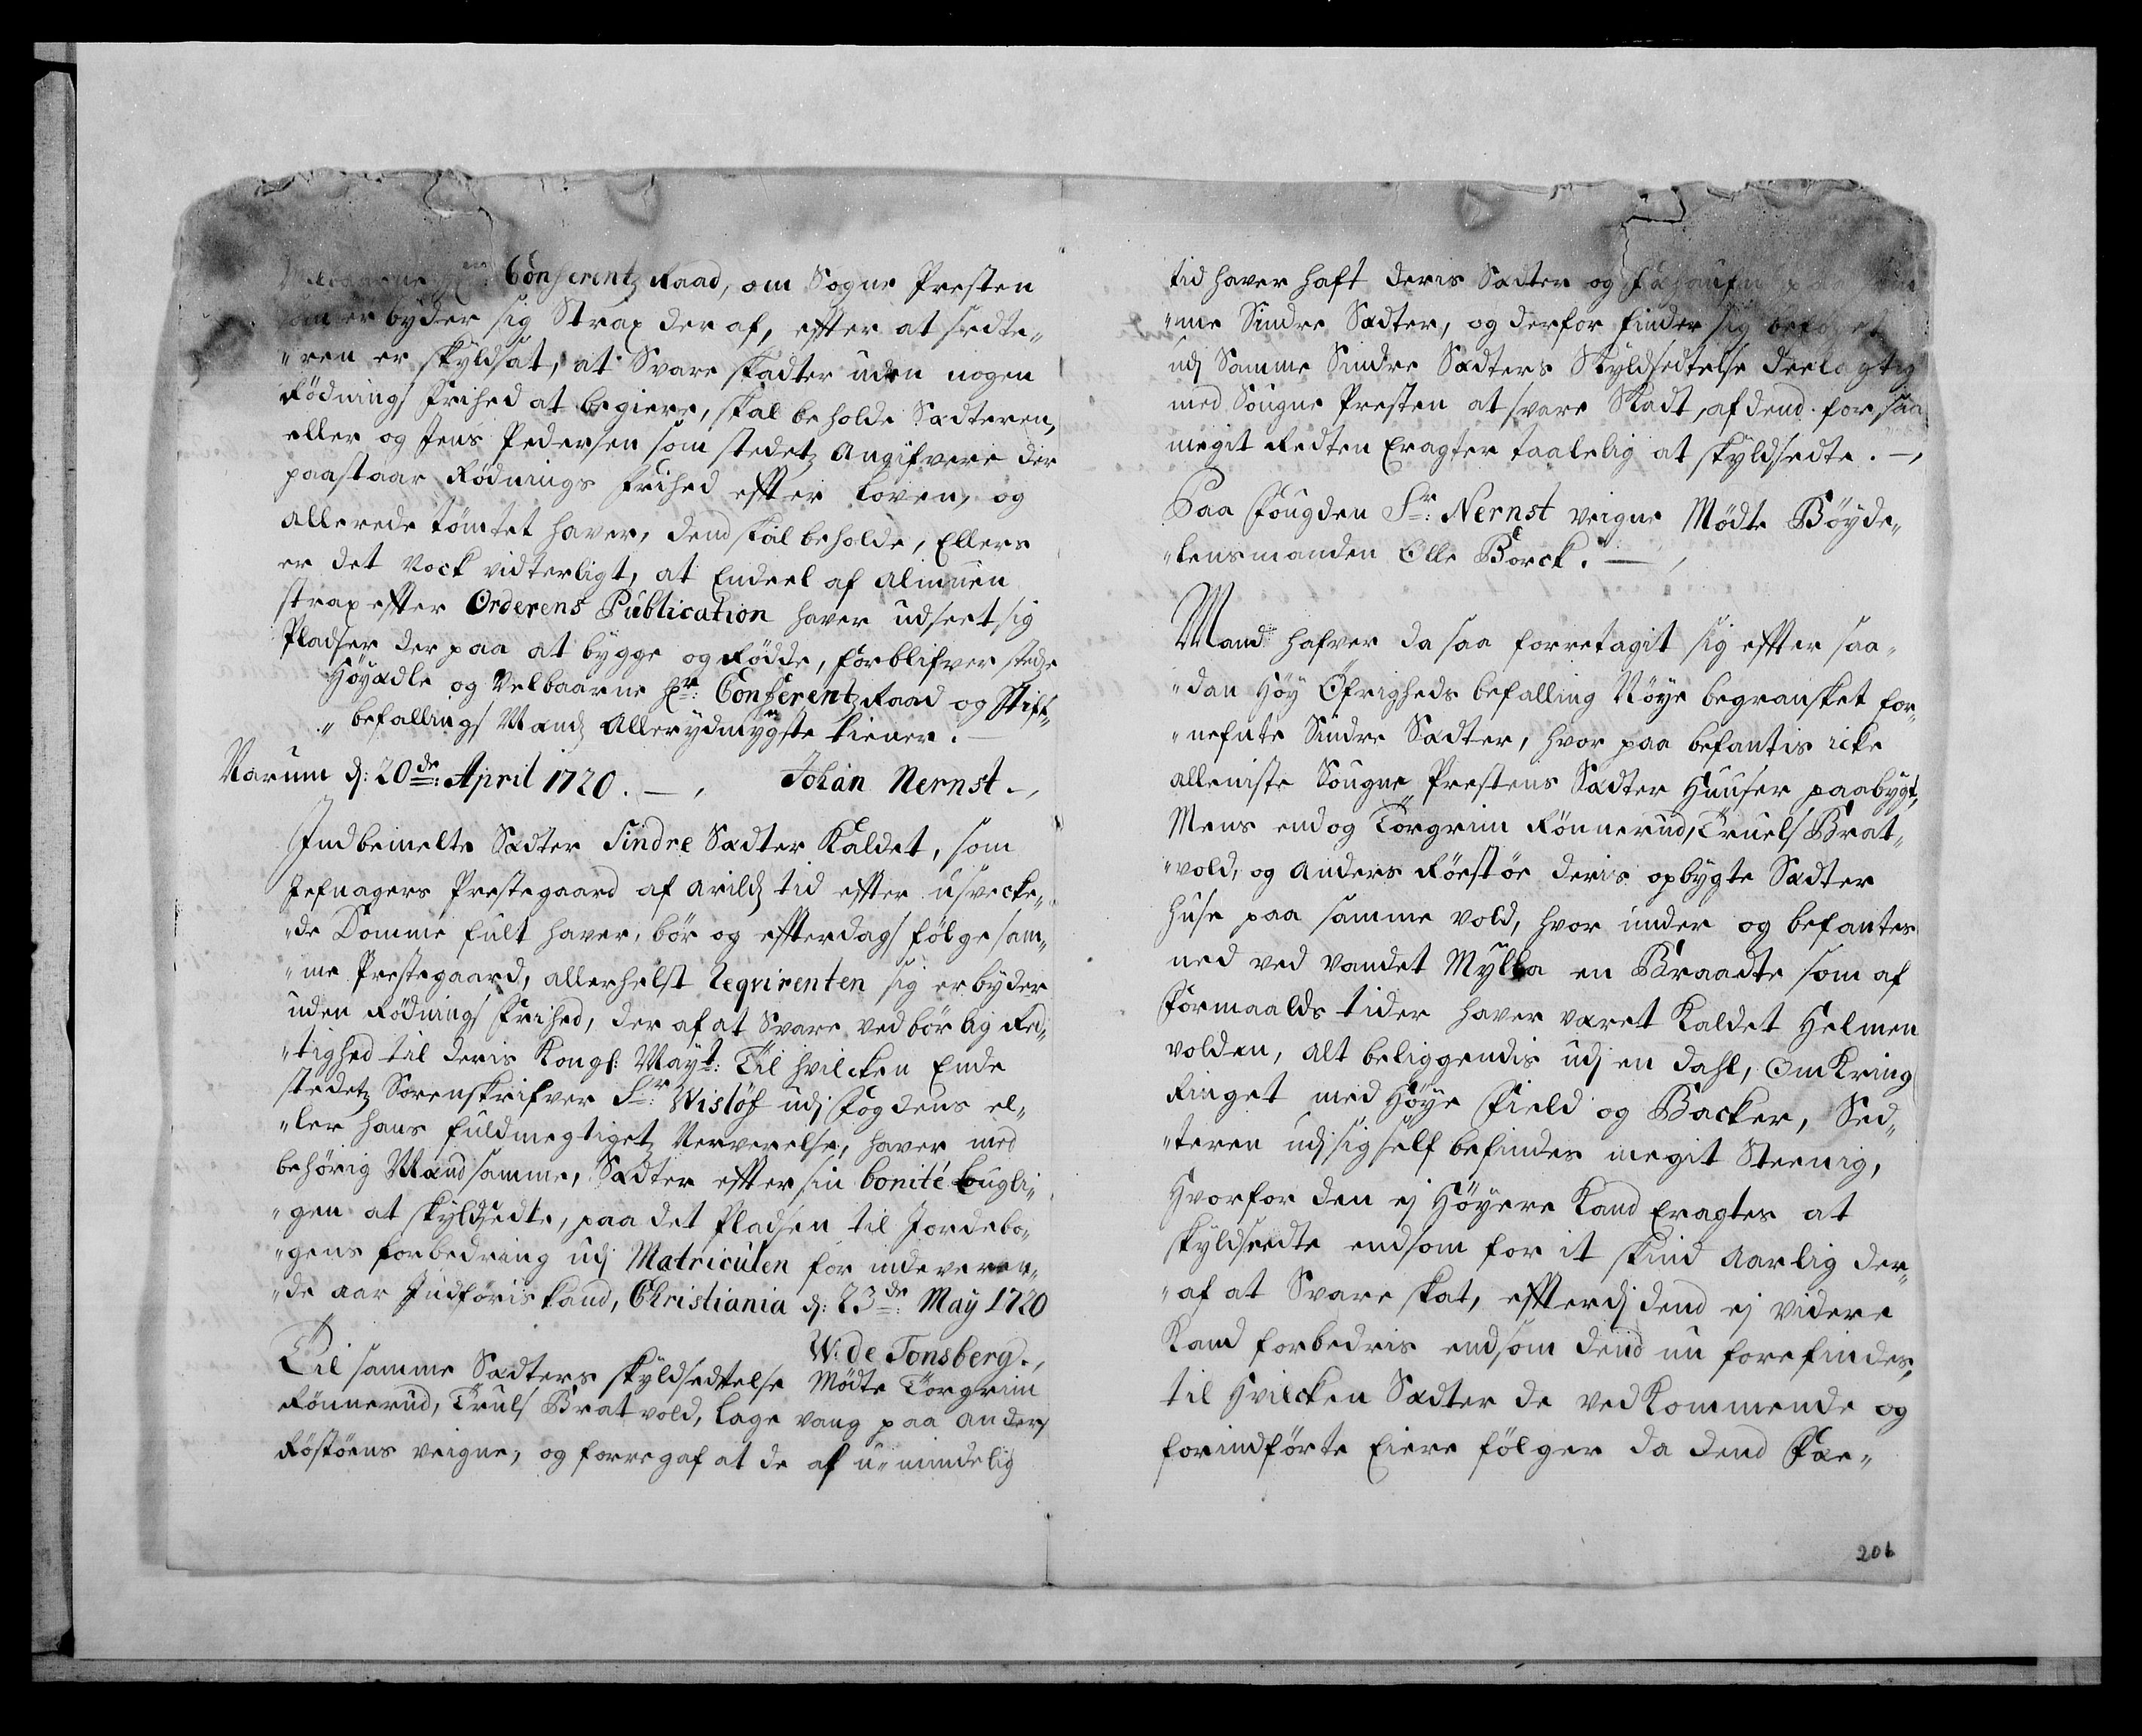 Velbaarne Hr: Conferentz Raad, om Sogne Presten
som er byder sig Strax der af, effter at sedte„
„ren er skyldsat, at Svare skadter uden nogen
Rödnings frihed at begiere, skal beholde Sædteren,
eller og Jens Pedersen som stedetz Angifvere der
paastaar Rödnings frihed effter loven, og
allerede tömtet haver, dend skal beholde, Ellers
er det nock vidterligt, at Endeel af almuen
strax effter Orderens Publication haver udseet sig
Pladser der paa at bygge og Rödde, forblifver stedze
Höyædle og Velbaarne Hr: Conferentz Raad og Stift„
„befallings Mands Allerydmygste tiener.
Narum d: 20de: April 1720. — , Johan Nernst. ,
Indbemelte Sædter Sindre Sædter Kaldet, som
Jefnagers Prestegaard af arilds tid effter usvecke„
„de Domme fult haver, bör og effterdags fölge sam„
„me Prestegaard, allerhelst Reqvirenten sig erbyder
uden Rödnings frihed, der af at Svare ved bör lig Red„
„tighed til deris Kongl: Mayt: Til hvilcken Ende
stedetz Sorenskrifver Sr: Wislöf udj fogdens el„
„ler hans fuldmegtiget Nerverelse, haver med
behörig Mænd samme, Sædter effter sin bonité lougli„
„gen at skyldsedte, paa det Pladsen til Jordebo„
„gens forbedring udj Matriculen for indeveren„
„de aar Indföris kand, Christiania d: 23de: May 1720
W: de Tonsberg. ,
Til samme Sædters skyldsedtelse Mödte Torgrim
Rönnerud, Truls Bratvold, Lage vang paa anders
Röstöens veigne, og forregaf at de af u„mindelig
tid haver haft deris Sædter og paa
„me Sindre Sædter, og derfor finder sig beföyet
udj Samme Sindre Sædters Skyldsedtelse deelagtig
med Sougne Presten at svare Skadt, af dend for saa
megit Redten Eragter taalelig at skyldsedte. — ,
Paa Fougden Sr: Nernst veigne Mödte Böyde„
„lensmanden Olle Borck. — ,
Mand hafver da saa forretagit sig effter saa„
„dan Höy Öfrigheds befalling Nöye begransket for„
„nefnte Sindre Sædter, hvor paa befantis icke
alleniste Sougne Prestens Sædter Huuser paabygt,
Mens endog Torgrim Rönnerud, Truels Brat„
„vold, og Anders Röestöe deris opbygte Sædter
huse paa samme vold, hvor under og befantes
ned ved vandet Mylla en Braadte som af
Formaalds tider haver været Kaldet Helmen
volden, alt beliggendis udj en dahl, Omkring
Ringet med Höye Field og Backer, Sed„
„teren udj sig self befindes megit Steenig,
Hvorfor den ej Höyere Kand Eragtes at
skyldsedte endsom for it skind aarlig der„
„af at Svare skat, effterdj dend ej videre
Kand forbedris endsom dend nu forefindes,
til Hvilcken Sædter de ved Kommende og
forindförte Eiere fölger da dend Fæe„
206